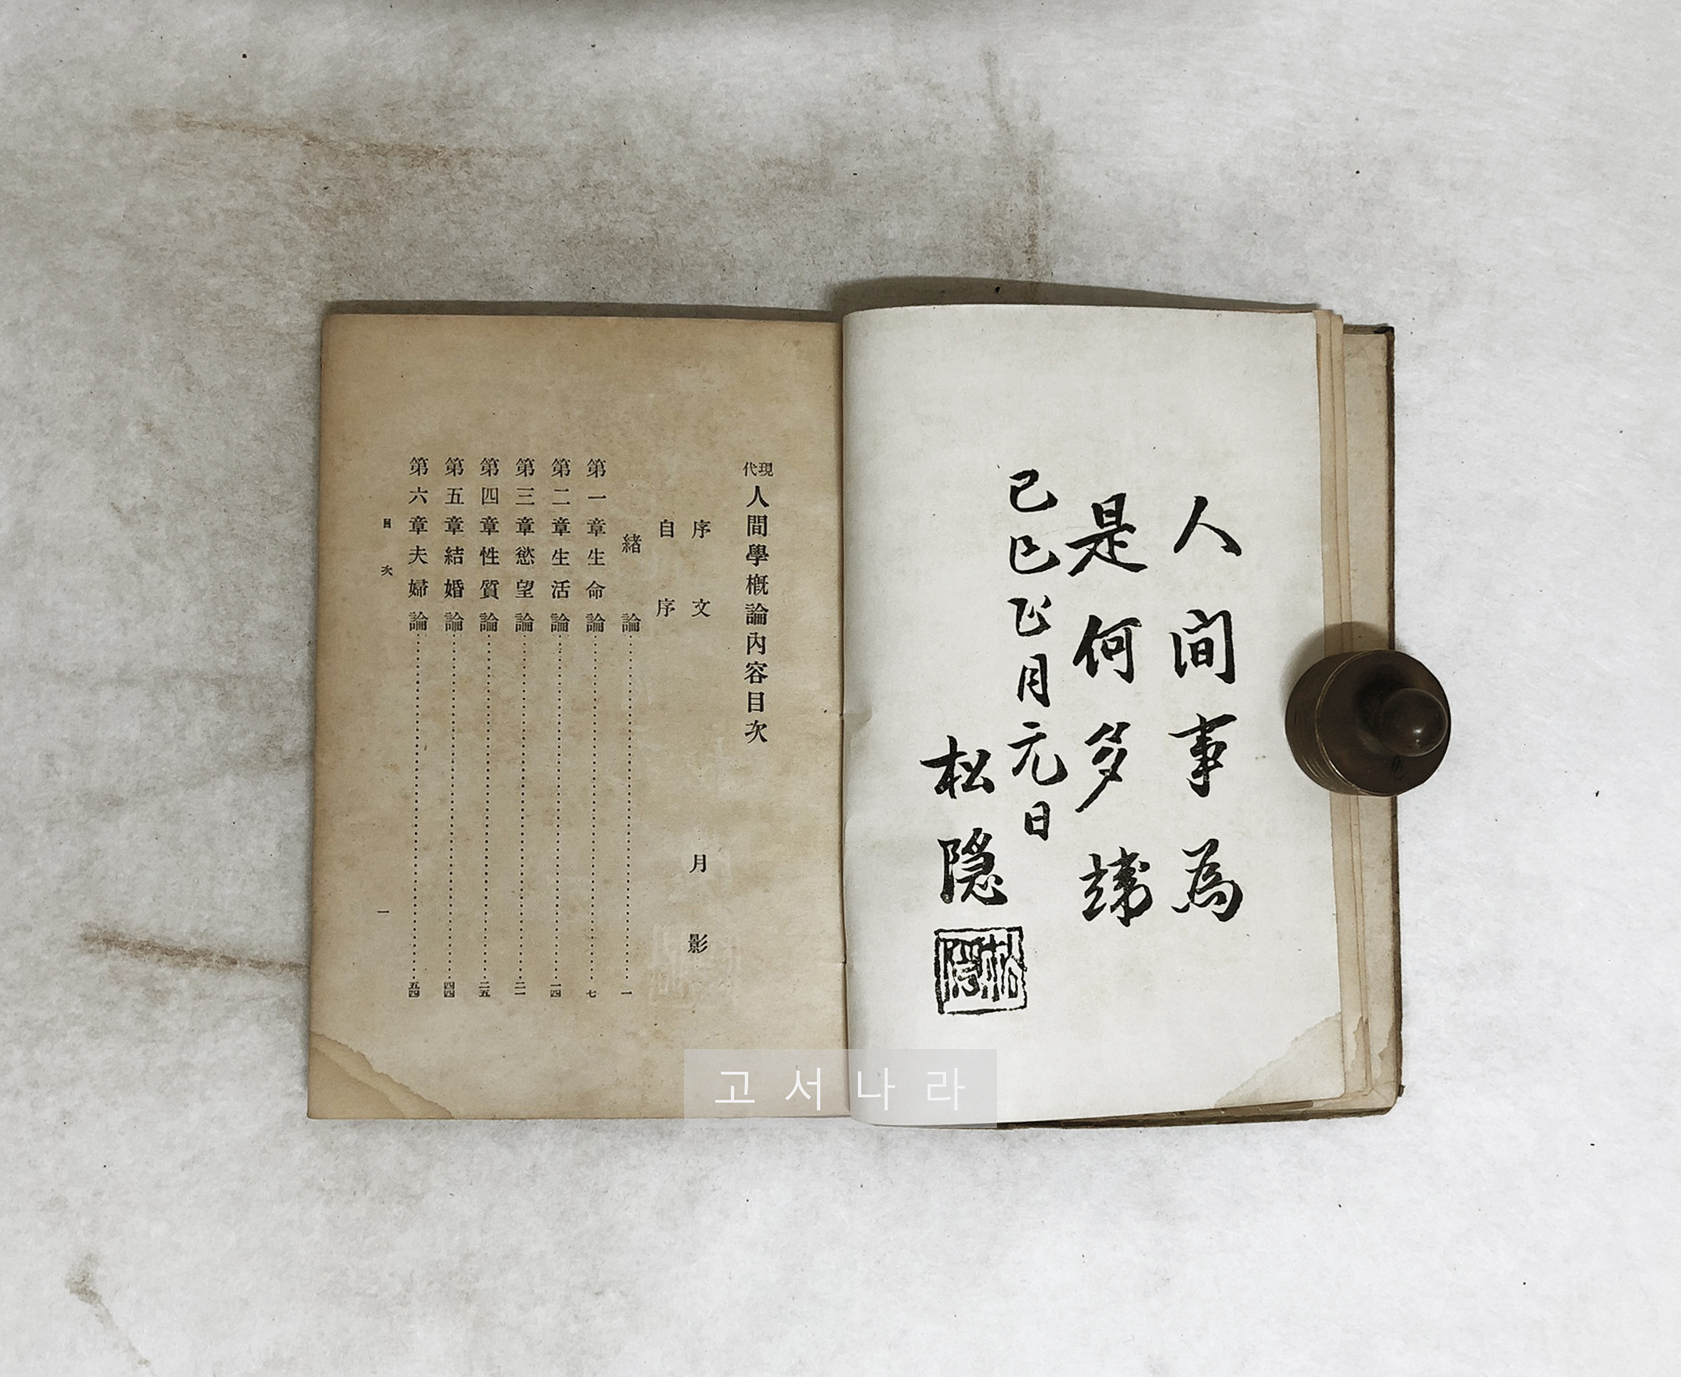 人間事為
是何多端
己巳正月元日
松隱
松隱
現代人間學槪論內容目次
序文 月影
自序
緖論 一
第一章生命論 七
第二章生活論 一四
第三章慾望論 二一
第四章性質論 二五
第五章結婚論 四四
第六章夫婦論 五四
目次 一
고서나라